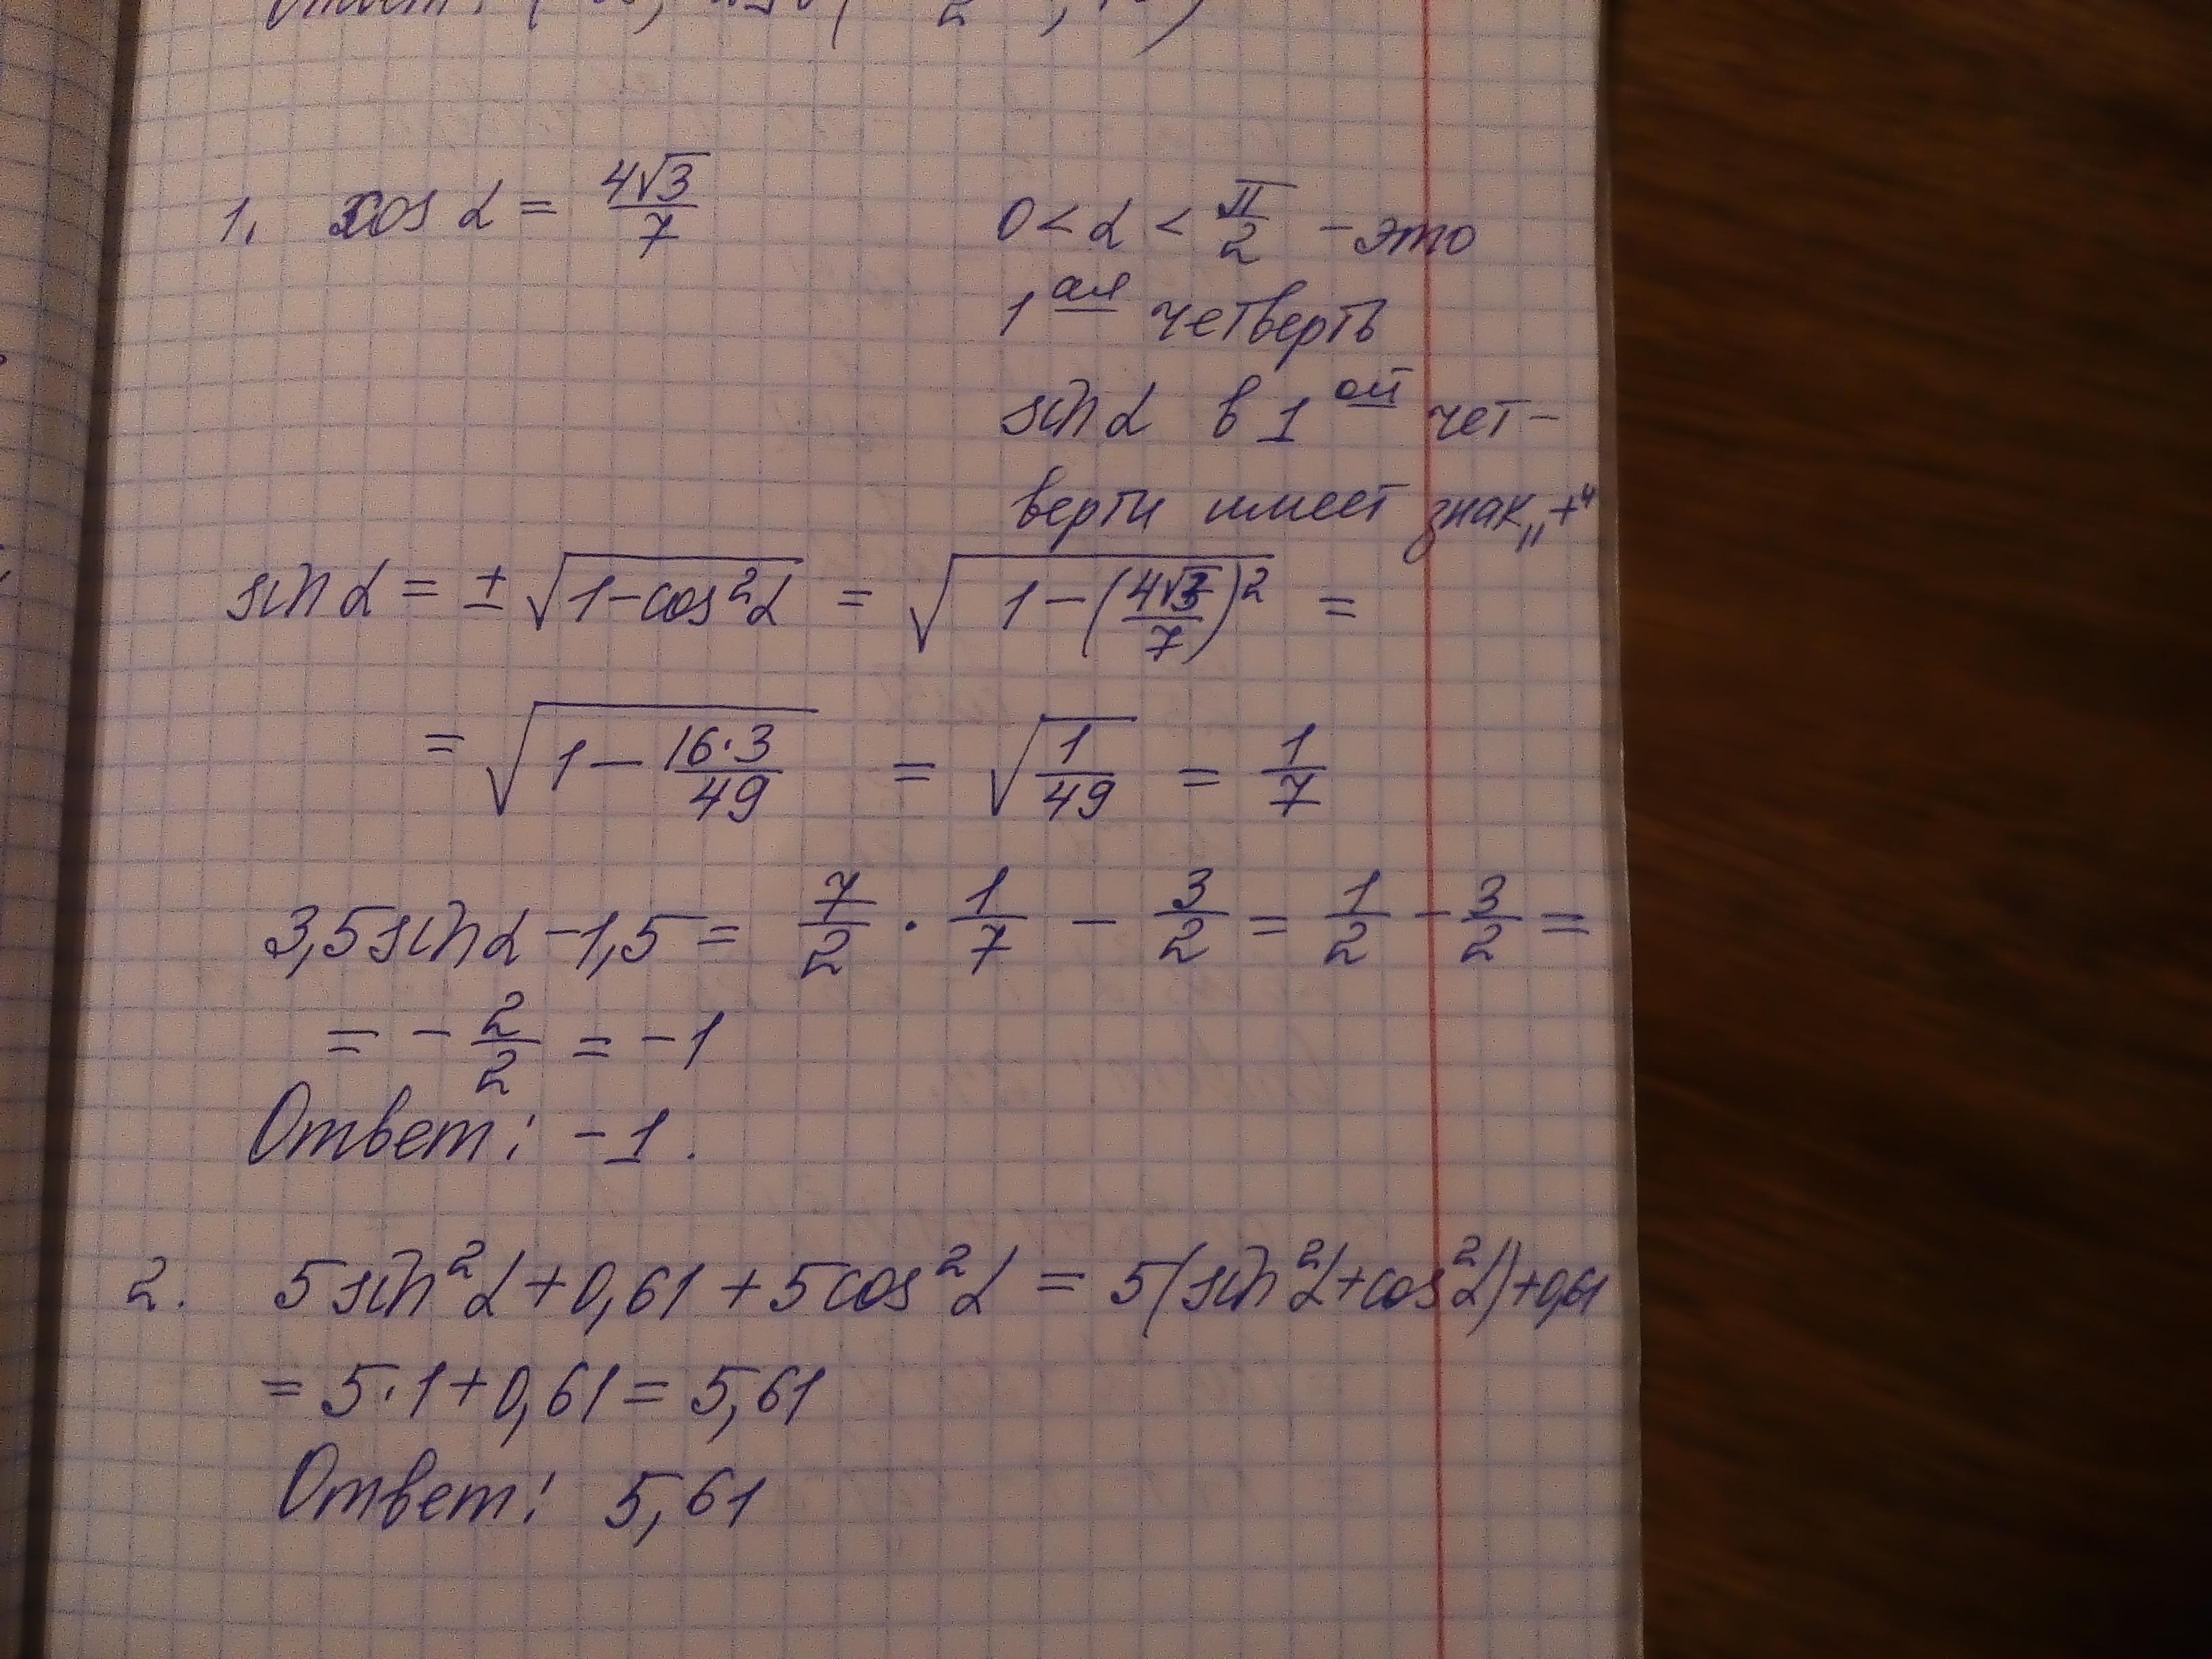 Ответ:
1. cos α = 4√3/7
0 < α < π/2 - это
1ая четверть
sin α в 1ой чет-
верти имеет знак „+“
sin α = ± √(1-cos²α) = √(1-(4√3/7)²) =
= √(1 - 16·3/49) = √(1/49) = 1/7
3,5 sin α - 1,5 = 7/2 · 1/7 - 3/2 = 1/2 - 3/2 =
= - 2/2 = -1
Ответ: -1.
2. 5 sin²α + 0,61 + 5 cos²α = 5(sin²α + cos²α) + 0,61
= 5·1 + 0,61 = 5,61
Ответ: 5,61